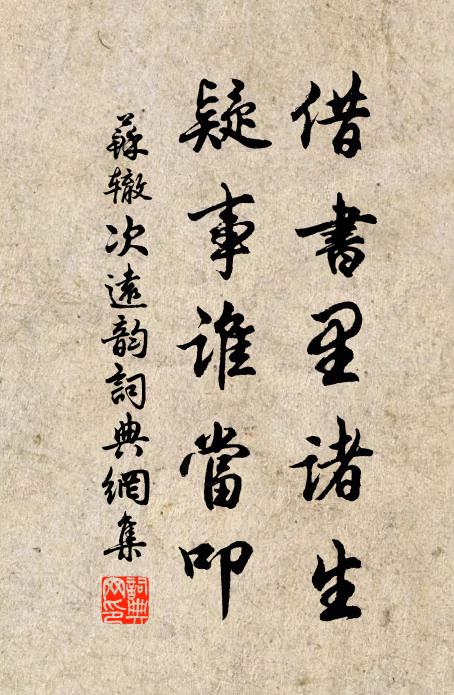 借書里诸生
疑事誰當叩
蘇辙次遠韵詞典網集
詞典网印